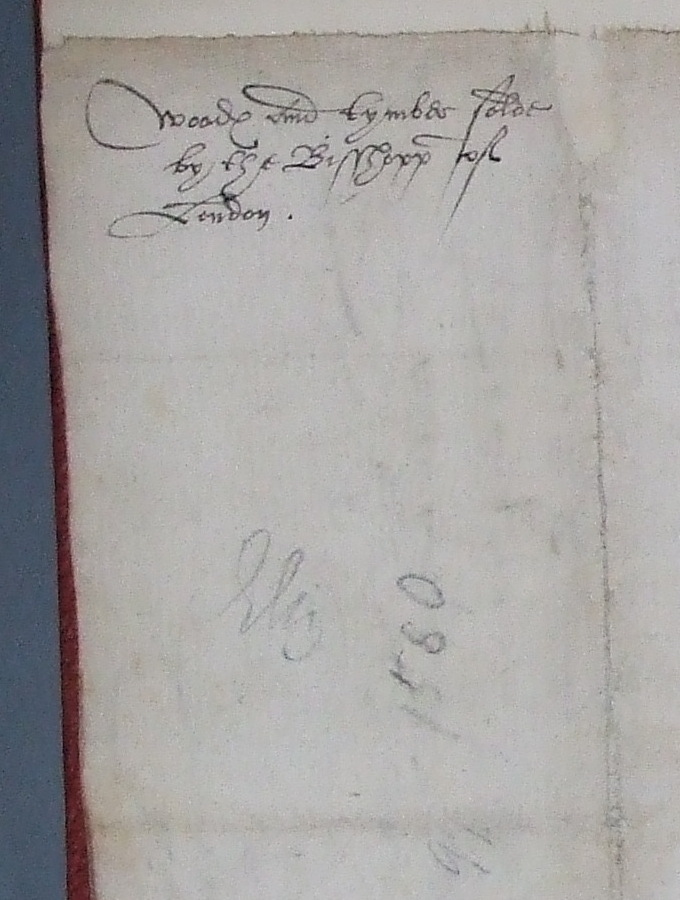 Woode and tymber solde
by the Bisshopp of
London .
Eliz
1580